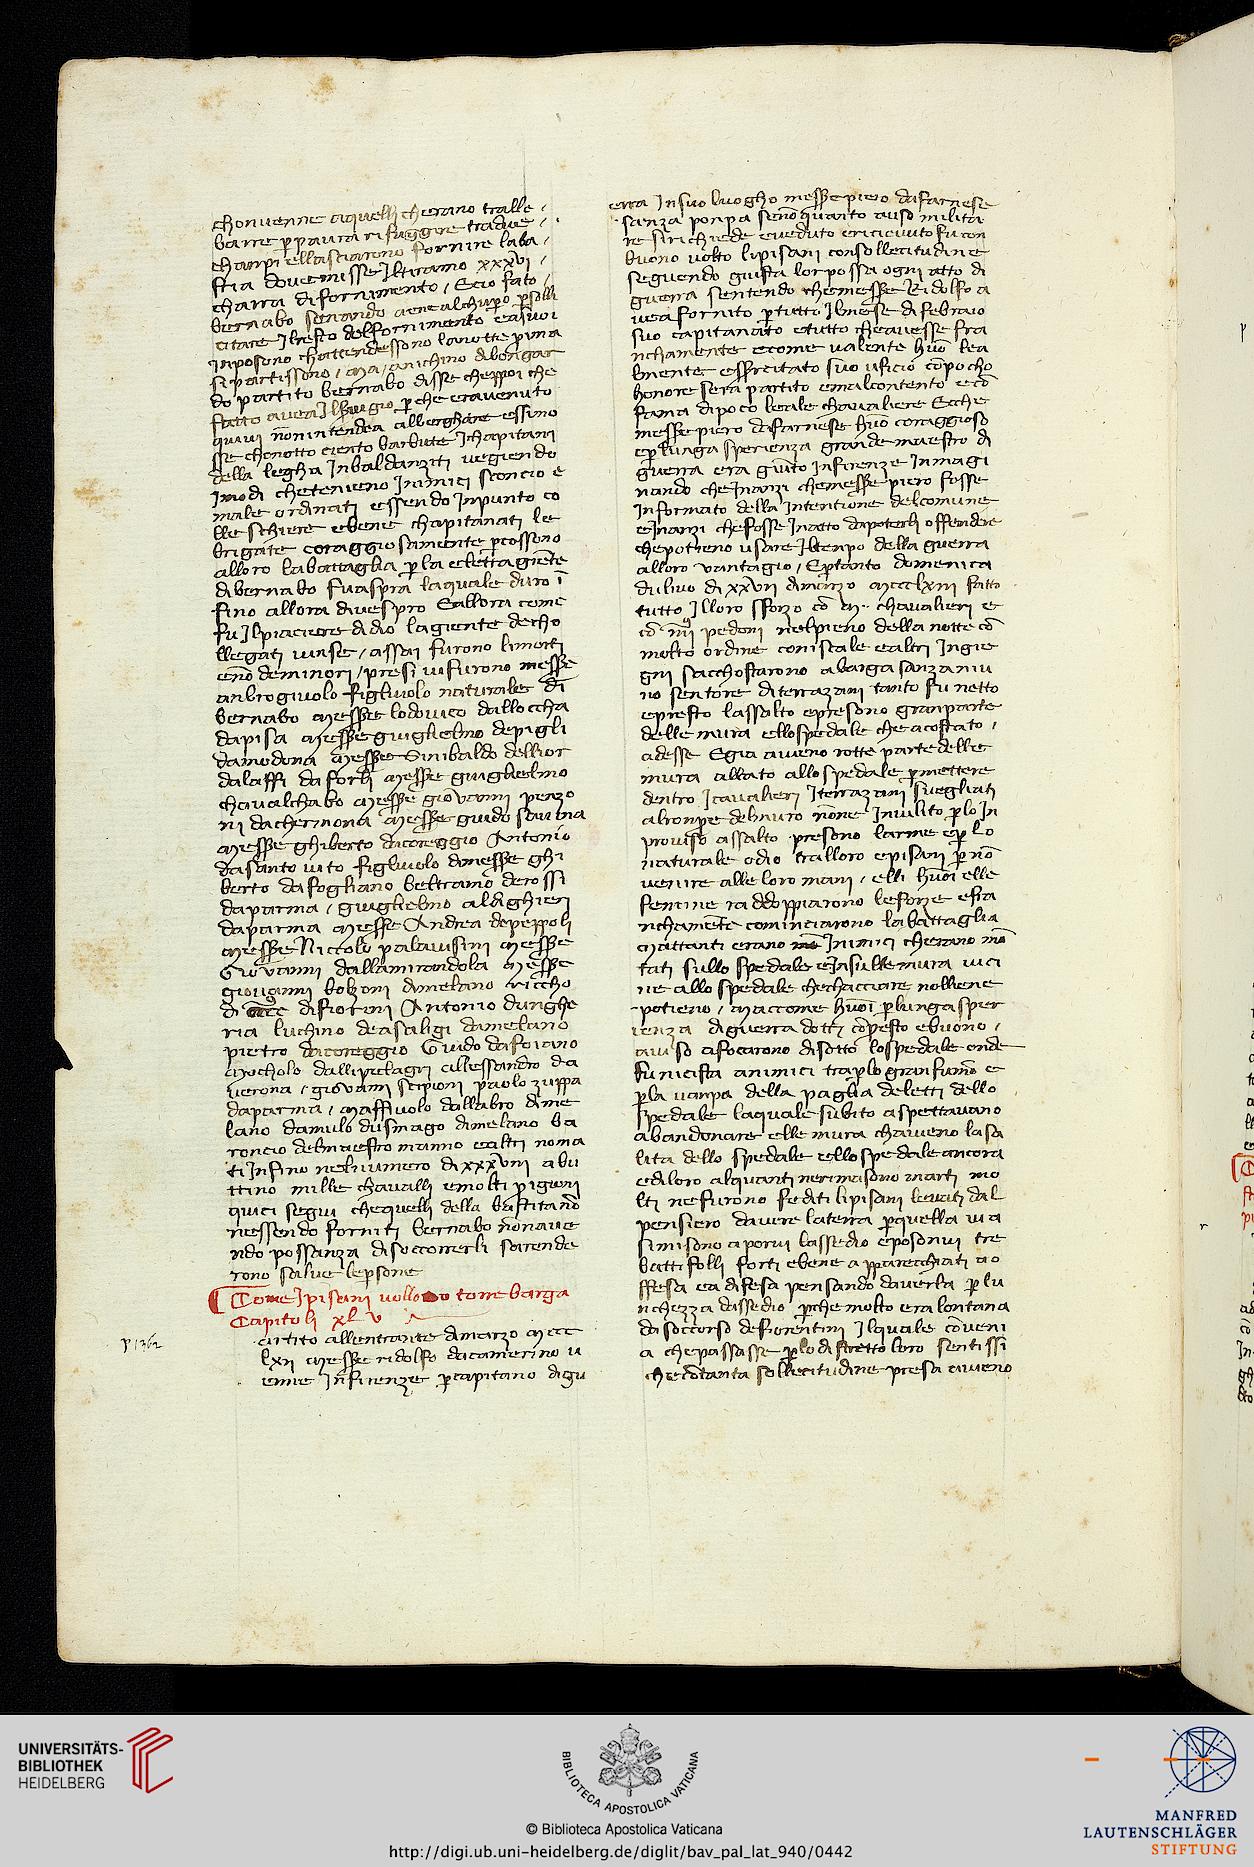 chonvenne aquelli cherano tralle
barre p paura rifuggire tradue
champi ellasciarono fornire laba
stia dove misse Iltiramo xxxvi
charra di fornimento / Ecio fato
bernabo
citare Iresto del fornimento easuoi
inposono chattendessono lanotte prima
si partissono / ma / anichino dibongar
do partito bernabo disse cheppoi che
fatto avea Il p che eravenuto
quivi nonintendea alberghare essino
sse chonotto ciento barbute Ichapitani
della legha Inbaldanziti vegiendo
Imodi chetenieno Inimici sconcio e
male ordinati essendo Inpunto co
lle schiere ebene chapitanati le
brigate coraggiosamente pcossono
alloro labattaglia p la eletta giente
dibernabo fu aspra laquale duro i
fino allora divespro Eallora come
fu Ilpiaciere didio lagiente decho
llegati vinse / assai furono limorti
eno deminori / presi vifurono messe
anbrogivolo figlivolo naturale di
bernabo messe lodovico dalloccha
dapisa messe guiglielmo depigli
damodona messe Sinibaldo dellior
dalaffi daforli messe guiglielmo
chavalchabo messe giovanni ponzo
ni dachermona messe guido savina
messe ghiberto dacoreggio Antonio
dasanto vito figlivolo dmesse ghi
berto dafogliano beltramo derossi
daparma / guiglielmo aldighieri
daparma messe Andrea depeppoli
messe Niccolo palavisini messe
Giovanni dallamirandola messe
giovanni bolzoni dimelano riccho
di difiorini Antonio dunghe
ria luchino deasaligi damelano
pietro dacoreggio Guido dafoiano
mocholo dallipelagri allessandro da
verona / giovanni scipioni paolo zuppa
daparma / maffivolo dallabro dime
lano damulo dusmago dimelano ba
roncio delmaestro manno ealtri noma
ti Infino nelnumero di xxxviii abu
ttino mille chavalli emolti prigioni
quici segui chequelli della bastitano
nessendo forniti bernabo nonave
ndo possanza disoccorrerli sarende
rono salve lepsone
Come Ipisani vollono torre barga
Capitoli xlv
p 1362
artito allentrante dmarzo mccc
lxii messe ridolfo dacamerino v
enne Infirenze p capitano digu
erra Insuo luogho messe piero dafarnese
sanza ponpa seno quanto auso milita
re sirichiede eveduto ericievuto fu con
buono volto lipisani consollecitudine
seguendo giusta lor possa ogni atto di
guerra sentendo chemesse Ridolfo a
vea fornito p tutto Ilmese difebraio
suo capitanato etutto cheavesse fra
nchamente ecome valente huo lea
lmente esercitato suo uficio co pocho
honore sera partito emalcontento eco
fama dipoco leale chavaliere Ecche
messe piero dafarnese huo coraggioso
ep lunga sperienza grande maestro di
guerra era giuto Infirenze Inmagi
nando cheInanzi chemesse piero fosse
Informato della Intentione delcomune
eInanzi chefosse Inatto dapoterli offendere
chepotieno usare Iltenpo della guerra
alloro vantagio / Eptanto domenica
dulivo di xxvii dimarzo mccclxiii fatto
tutto Illoro sforzo co m chavalieri e
co iiii pedoni nelpieno della notte co
molto ordine coniscale ealtri Ingie
gni sacchostarono abarga sanza niu
no sentore diterrazani tanto fu netto
epresto lassalto epresono granparte
delle mura ellospedale che acostato
adesse Egia avieno rotte parte delle
mura allato allospedale p mettere
dentro Icavalieri Iterrazani svegliati
alronpe delmuro none Invilito p lo In
proviso assalto presono larme ep lo
naturale odio tralloro episani p no
venire alleloro mani / elli huoi elle
femine raddoppiarono leforze efra
nchamente cominciarono labattaglia
mattanti erano Inimici cherano mo
tati sullo spedale eInsullemura vici
ne allo spedale chechacciare nolliene
potieno / maccome huoi p lunga sper
ienza diguerra dotti copresto ebuono
aviso afocarono disotto lospedale onde
funicista animici trap lo granfumo e
p la vampa della paglia deletti dello
spedale laquale subito aspettavano
abandonare elle mura chavieno lasa
lita dello spedale ello spedale ancora
ediloro alquanti nerimasono morti mo
lti nefurono fediti lipisani levati dal
pensiero davere laterra p quella via
simisono aporvi lassedio eposonvi tre
battifolli forti ebene apparecchiati ao
ffesa ea difesa pensando daverla p lu
nchezza dassedio pche molto era lontana
dasoccorso defiorentini Ilquale coveni
a chepassasse p lo distretto loro sentissi
checotanta sollecitudine presa avieno
UNIVERSITÄTS-
BIBLIOTHEK
HEIDELBERG
BIBLIOTECA APOSTOLICA VATICANA
© Biblioteca Apostolica Vaticana
http://digi.ub.uni-heidelberg.de/diglit/bav_pal_lat_940/0442
MANFRED
LAUTENSCHLÄGER
STIFTUNG